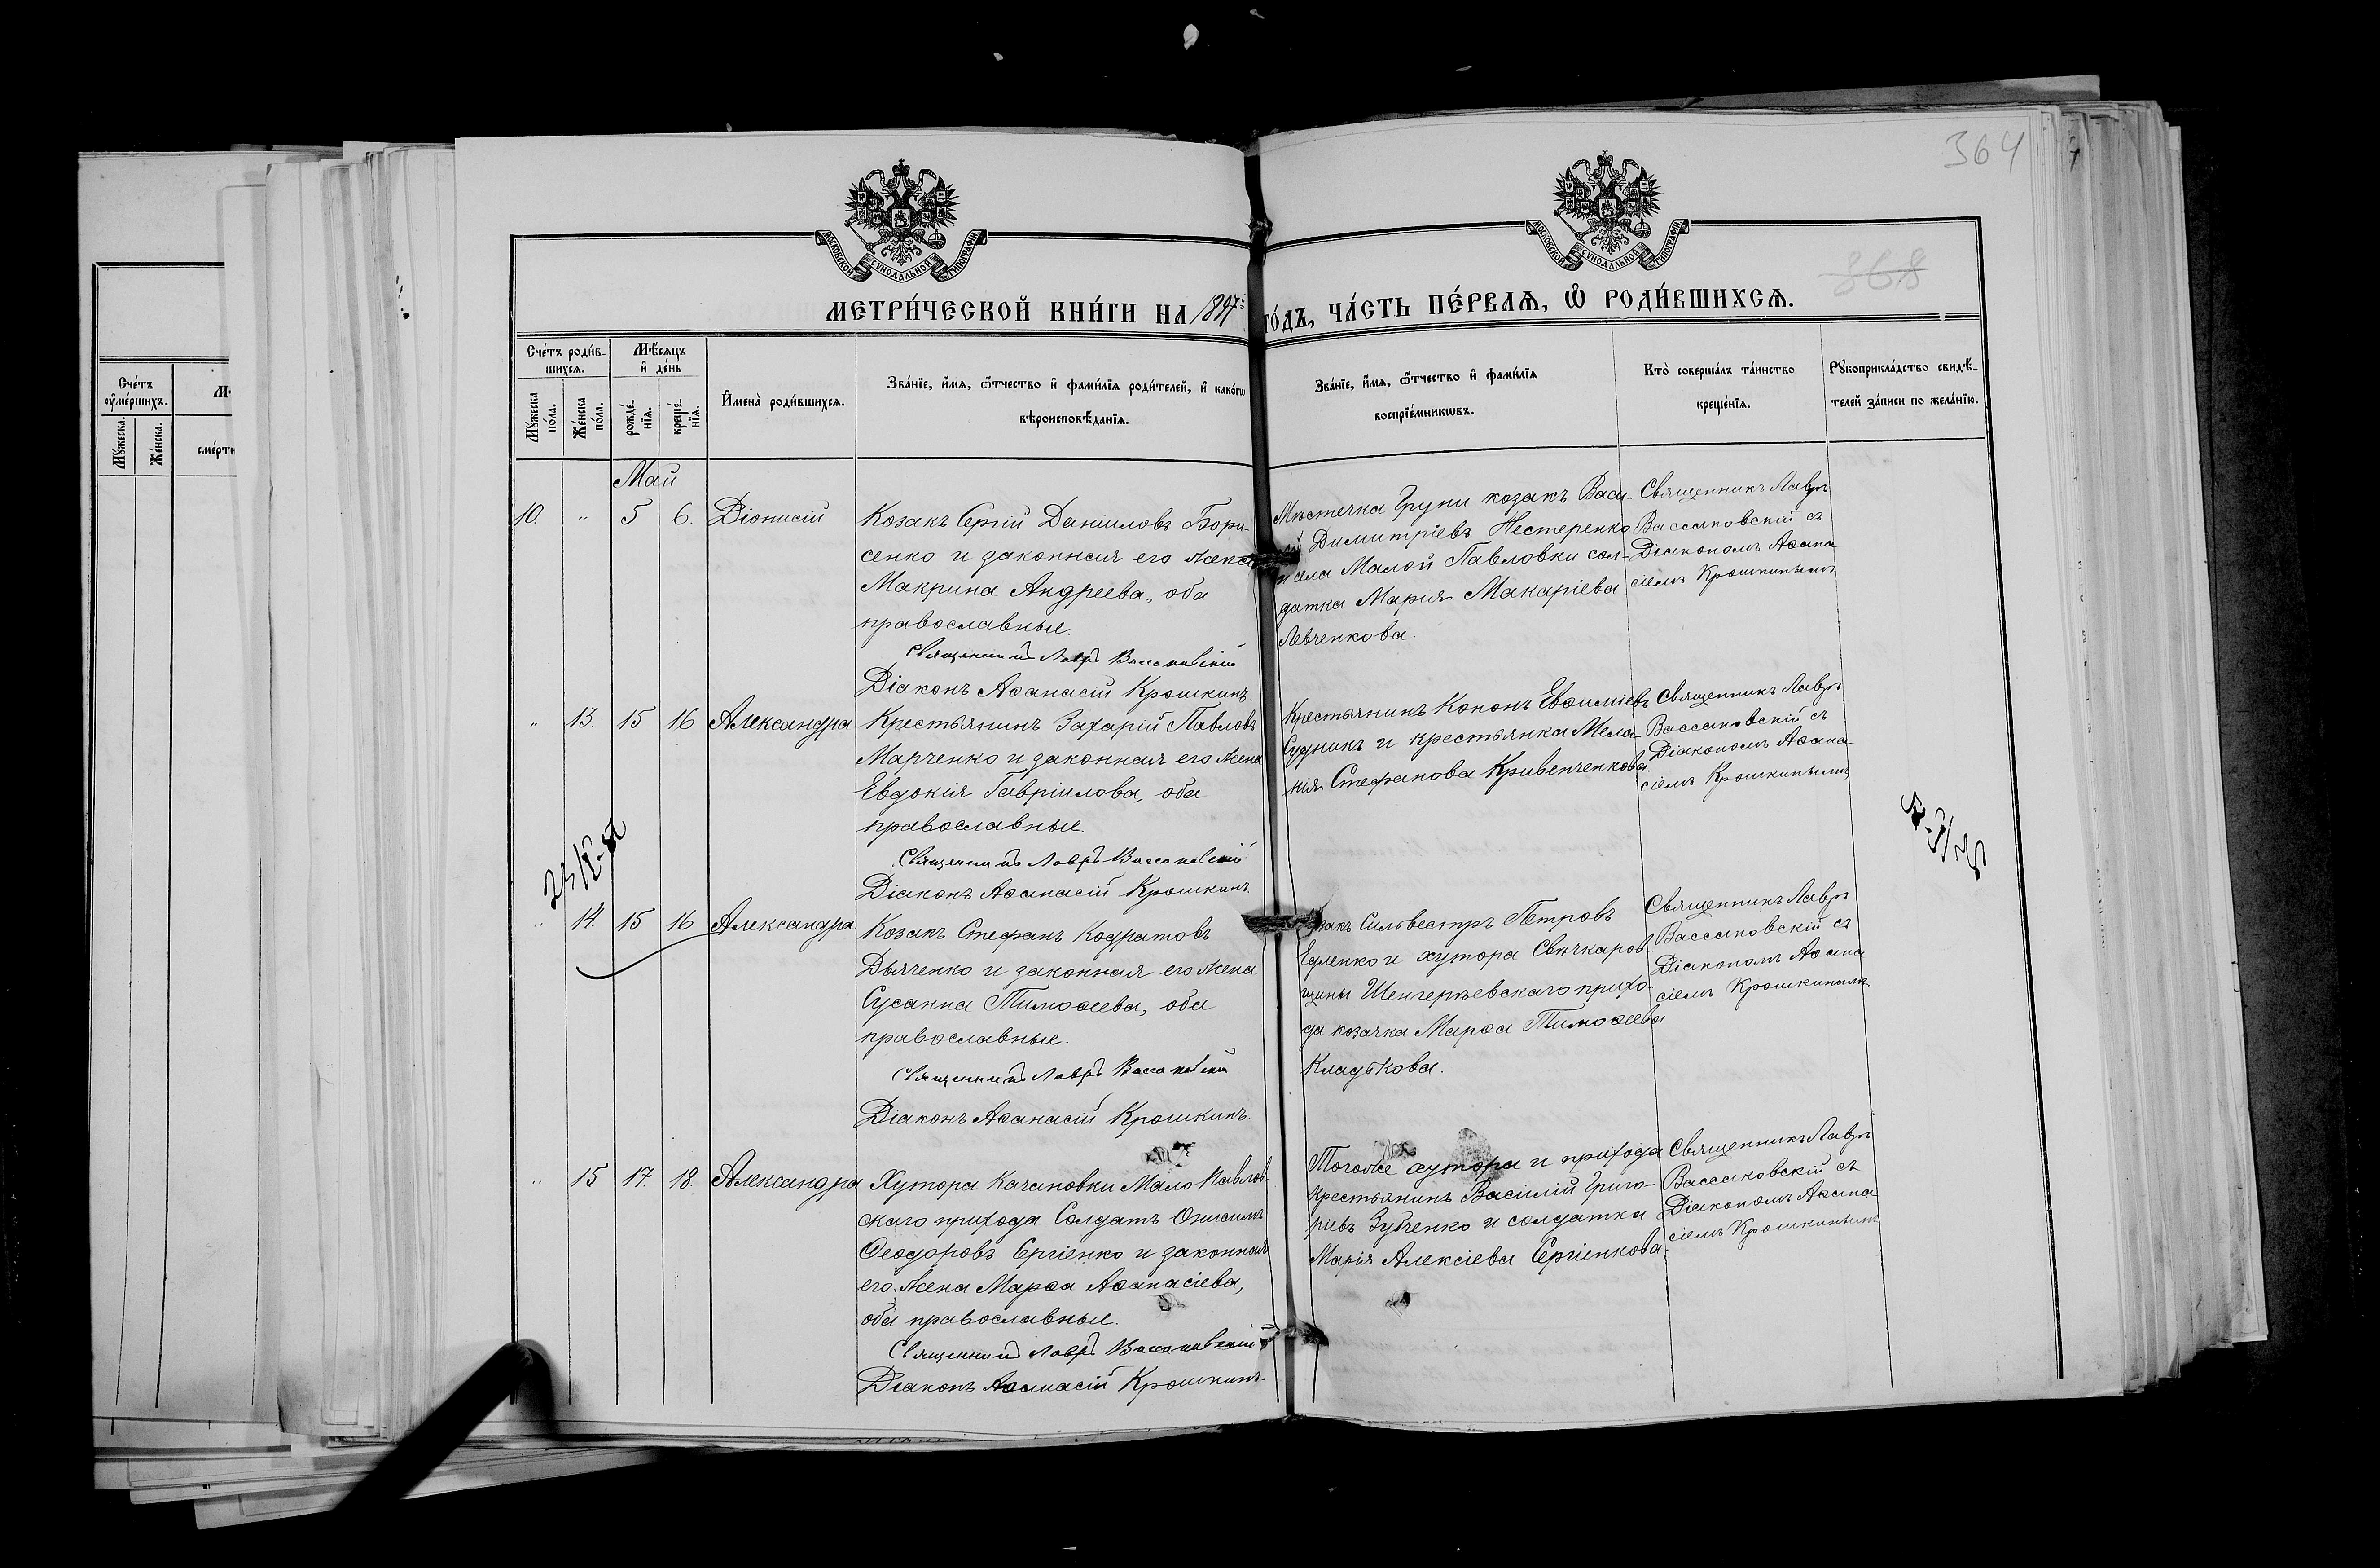 364
368
МОСКОВСКОЙ СѴНОДАЛЬНОЙ ТИПОГРАФІИ
МОСКОВСКОЙ СѴНОДАЛЬНОЙ ТИПОГРАФІИ
МЕТРИ́ЧЕСКОЙ КНИ́ГИ НА 1897 ГО́ДЪ, ЧА́СТЬ ПЕ́РВАѦ, Ѽ РОДИ́ВШИХСѦ.
Сче́тъ оуме́ршихъ.
Мꙋ́жеска.
Же́нска.
сме́рти
Сче́тъ роди́в-
шихсѧ.
Мꙋ́жеска по́ла.
Же́нска по́ла.
Мѣ́сѧцъ
и҆ де́нь
рожде́-
нїѧ.
креще́-
нїѧ.
И҆мена̀ роди́вшихсѧ.
Зва́нїе, и҆́мѧ, ѻ҆́тчество и҆ фами́лїѧ роди́телей, и҆ како́гѡ
вѣроисповѣ́данїѧ.
Зва́нїе, и҆́мѧ, ѻ҆́тчество и҆ фами́лїѧ
воспрїе́мникѡвъ.
Кто̀ соверша́лъ та́инство
креще́нїѧ.
Рꙋкоприкла́дство свидѣ́-
телей за́писи по жела́нїю.
Май
10. " 5 6. Діонисій
Козакъ Сергій Даніиловъ Бори-
сенко и законная его жена
Макрина Андреева, оба
православные.
Священникъ Лавръ Вассаковскій
Діаконъ Аѳанасій Крошкинъ.
Мѣстечка Груни козакъ Васи-
лій Димитріевъ Нестеренко
и села Малой Павловки сол-
датка Марія Макаріева
Левченкова.
Священникъ Лавръ
Вассаковскій съ
Діакономъ Аѳана
сіемъ Крошкинымъ
" 13. 15 16 Александра
Крестьянинъ Захарій Павловъ
Марченко и законная его жена
Евдокія Гавріилова, оба
православные.
Священникъ Лавръ Вассаковскій
Діаконъ Аѳанасій Крошкинъ.
Крестьянинъ Кононъ Евѳиміевъ
Судникъ и крестьянка Мела-
нія Стефанова Кривенченкова.
Священникъ Лавръ
Вассаковскій съ
Діакономъ Аѳана-
сіемъ Крошкинымъ
" 14. 15 16 Александра
Козакъ Стефанъ Кодратовъ
Дьяченко и законная его жена
Сусанна Тимоѳеева, оба
православные.
Священникъ Лавръ Вассаковскій
Діаконъ Аѳанасій Крошкинъ.
Козакъ Сильвестръ Петровъ
и хутора Свѣчкаров-
щины Шенгерѣевскаго прихо-
да козачка Марѳа Тимоѳеева
Кладькова.
Священникъ Лавръ
Вассаковскій съ
Діакономъ Аѳана
сіемъ Крошкинымъ
" 15 17. 18. Александра
Хутора Качановки Мало Павлов-
скаго прихода Солдатъ Онисимъ
Ѳеодоровъ Сергіенко и законная
его жена Марѳа Аѳанасіева,
оба православные.
Священникъ Лавръ Вассаковскій
Діаконъ Аѳанасій Крошкинъ.
Тогоже хутора и прихода
крестьянинъ Василій Григо-
ріевъ Зубченко и солдатка
Марія Алексіева Сергіенкова.
Священникъ Лавръ
Вассаковскій съ
Діакономъ Аѳана
сіемъ Крошкинымъ